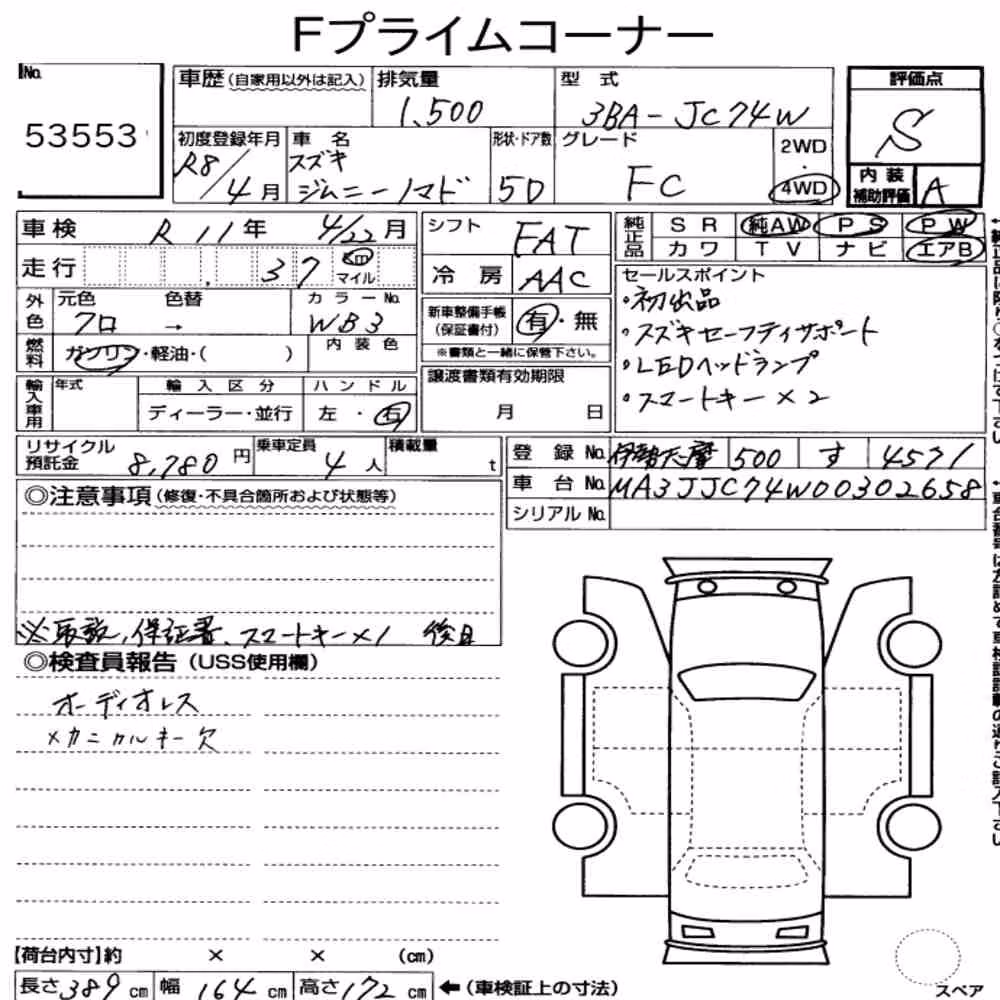 Fプライムコーナー
No. 53553
車歴(自家用以外は記入)
排気量 1,500
型式 3BA-JC74W
評価点 S
初度登録年月 R8/4月
車名 スズキ ジムニーノマド
形状・ドア数 5D
グレード FC
2WD・4WD
内装補助評価 A
車検 R11年 4/22月
走行 37 km マイル
外色 元色 クロ 色替 → カラーNo. WB3
燃料 ガソリン・軽油・( ) 内装色
輸入車用 年式 輸入区分 ディーラー・並行 ハンドル 左・右
シフト FAT
冷房 AAC
新車整備手帳(保証書付) 有・無
※書類と一緒に保管下さい。
譲渡書類有効期限
月 日
純正品 SR 純AW PS PW
カワ TV ナビ エアB
セールスポイント
・初出品
・スズキセーフティサポート
・LEDヘッドランプ
・スマートキー×2
リサイクル預託金 8,780円
乗車定員 4人
積載量 t
登録No. 500 す 4571
車台No. MA3JJC74W00302658
シリアルNo.
◎注意事項(修復・不具合箇所および状態等)
保証書、スマートキー×1 後日
◎検査員報告(USS使用欄)
オーディオレス
メカニカルキー欠
【荷台内寸】約 × × (cm)
長さ389cm 幅164cm 高さ172cm ←(車検証上の寸法)
スペア